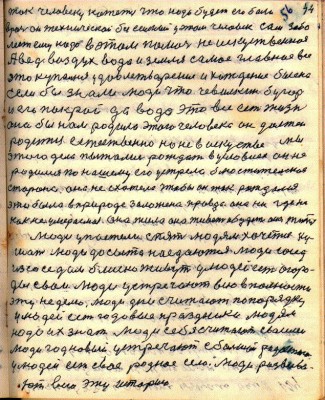 так человеку кажется что надо будет ему была 56 94
врагом технической бы силы этот человек сам забо
лет ему надо в этом помощь не искусственное
А ведь воздух вода и земля самое главное все
это купания удовлетворения и хождение было
если бы знали люди что чевилкин бугор
и его покров да вода это все есть жизнь
она бы нам родила этого человека он должен
родиться естественно но не в искусстве мы
этого дела пытались рождать в условиях он не
родился по нашему его устрела блюстительская
сторона она не схотела чтобы он так рождался
это была в природе заложена правда она нигде не
как не умирала Она жила она живет и будет она жить
Люди упастели спят людям хочется ку
шать люди досыта наедаются Люди сосед
из соседом близко живут у людей есть огоро
ды свои Люди устречают всю в полности
эту неделю люди дни считают по порядку
у людей есть годовые праздники людям
надо их знать Люди себя считают своими
люди год новый устречают с большой радостью
у людей есть свое родное село люди развива
ют всю эту историю